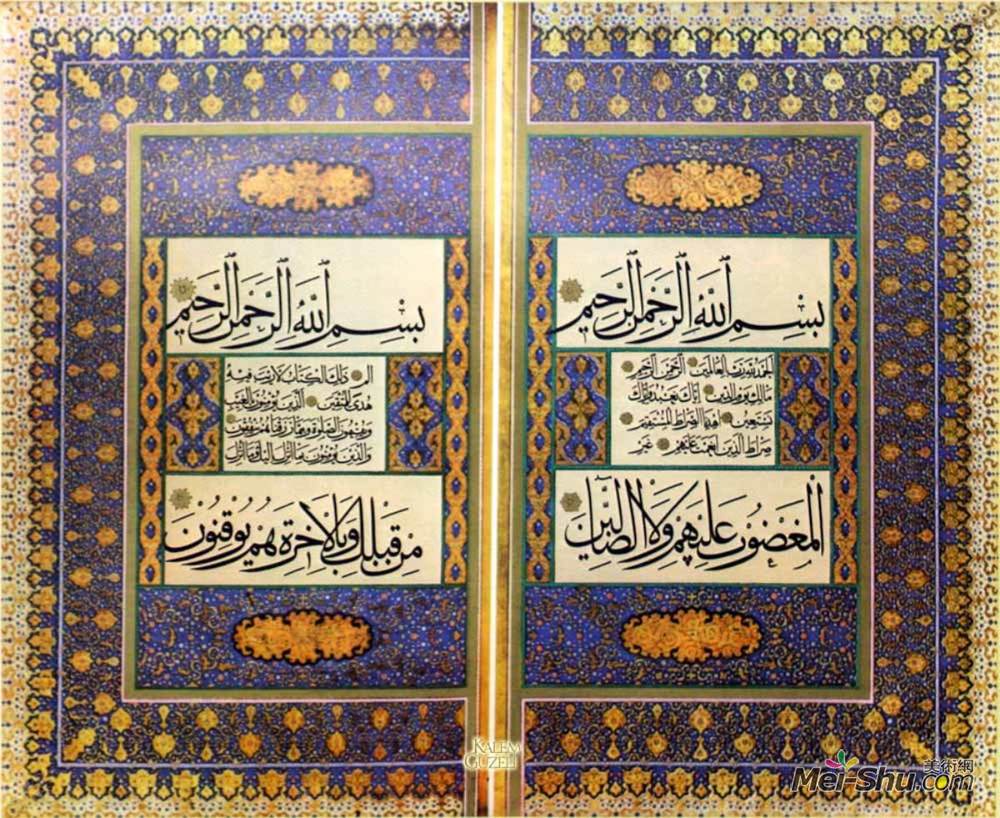 بِسْمِ اللَّهِ الرَّحْمَنِ الرَّحِيمِ
الحمد لله رب العالمين الرحمن الرحيم
مالك يوم الدين إياك نعبد وإياك
نستعين اهدنا الصراط المستقيم
صراط الذين أنعمت عليهم غير
الْمَغْضُوبِ عَلَيْهِمْ وَلَا الضَّالِّينَ
بِسْمِ اللَّهِ الرَّحْمَنِ الرَّحِيمِ
الم ذلك الكتاب لا ريب فيه
هدى للمتقين الذين يؤمنون بالغيب
ويقيمون الصلوة ومما رزقناهم ينفقون
والذين يؤمنون بما أنزل إليك وما أنزل
مِنْ قَبْلِكَ وَبِالْآخِرَةِ هُمْ يُوقِنُونَ
KALEM
GÜZELİ
美術網
Mei-Shu.com